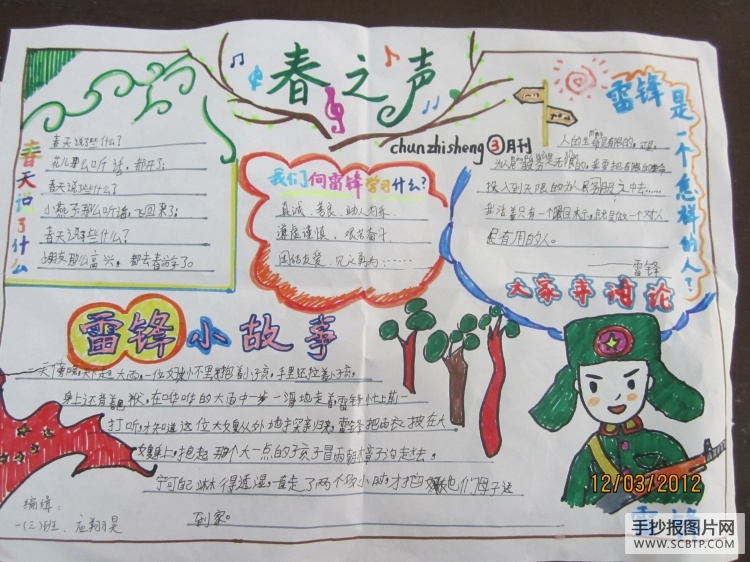 春之声
chunzhisheng ③月刊
春天说了什么
春天说些什么?
花儿那么听话,都开了;
春天说些什么?
小燕子那么听话,飞回来了;
春天说些什么?
小朋友那么高兴,都去春游了。
我们向雷锋学习什么?
真诚、善良、助人为乐、
谦虚谨慎、艰苦奋斗、
团结友爱、见义勇为……
雷锋是一个怎样的人?
人的生命是有限的,可是,
为人民服务是无限的,我要把有限的生命,
投入到无限的为人民服务之中去……
我活着只有一个目标,就是做一个对人
民有用的人。
——雷锋
大家来讨论
雷锋小故事
一天傍晚,天下起大雨,一位
手里还拉着小孩,
身上还背着包袱,在哗哗的大雨中一步一滑地走着,雷锋忙上前一
打听才知道这位大嫂从外地探亲归来,雷锋把雨衣披在大
嫂身上,抱起那个大一点的孩子冒雨朝樟子沟走去,
宁可自己淋得透湿,一直走了两个多小时,才把她们母子送
到家。
编辑:
一(三)班、应翔昊
雷锋
12/03/2012
手抄报图片网
WWW.SCBTP.COM